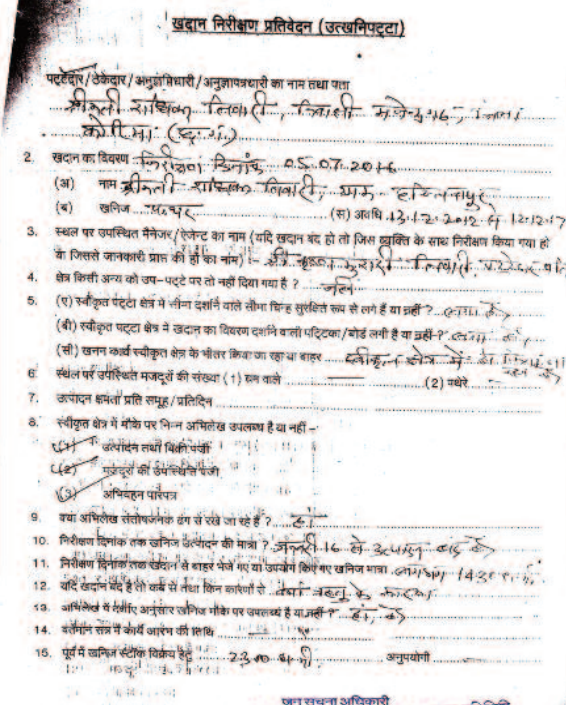 खदान निरीक्षण प्रतिवेदन (उत्खनिपट्टा)
पट्टेदार/ठेकेदार/अनुज्ञप्तिधारी/अनुज्ञापत्रधारी का नाम तथा पता
श्रीमती राधिका तिवारी, निवासी
कोरिया (छ.ग.)
2. खदान का विवरण निरीक्षण दिनांक 05.07.2016
(अ) नाम श्रीमती राधिका तिवारी, ग्राम
(ब) खनिज पत्थर (स) अवधि 13.12.2012 से 12.12.17
3. स्थल पर उपस्थित मैनेजर/ऐजेन्ट का नाम (यदि खदान बंद हो तो जिस व्यक्ति के साथ निरीक्षण किया गया हो
या जिससे जानकारी प्राप्त की हो का नाम) :- श्री कृष्ण मुरारी तिवारी
4. क्षेत्र किसी अन्य को उप-पट्टे पर तो नहीं दिया गया है ?
5. (ए) स्वीकृत पट्टा क्षेत्र में सीमा दर्शाने वाले सीमा चिन्ह सुरक्षित रूप से लगे हैं या नहीं? लगा है
(बी) स्वीकृत पट्टा क्षेत्र में खदान का विवरण दर्शाने वाली पट्टिका/बोर्ड लगी है या नहीं-? लगा है
(सी) खनन कार्य स्वीकृत क्षेत्र के भीतर किया जा रहा या बाहर स्वीकृत क्षेत्र में
6. स्थल पर उपस्थित मजदूरों की संख्या (1) श्रम वाले (2) पथेरे
7. उत्पादन क्षमता प्रति समूह/प्रतिदिन
8. स्वीकृत क्षेत्र में मौके पर निम्न अभिलेख उपलब्ध है या नहीं –
(1) उत्पादन तथा बिक्री पंजी
(2) मजदूरों की उपस्थिति पंजी
(3) अभिवहन पारपत्र
9. क्या अभिलेख संतोषजनक ढंग से रखे जा रहे हैं ? हां
10. निरीक्षण दिनांक तक खनिज उत्पादन की मात्रा ? जनवरी 16 से उत्पादन बंद है
11. निरीक्षण दिनांक तक खदान से बाहर भेजे गए या उपयोग किए गए खनिज मात्रा लगभग
12. यदि खदान बंद है तो कब से तथा किन कारणों से वर्षा ऋतु के कारण
13. अभिलेख में दर्शाए अनुसार खनिज मौके पर उपलब्ध है या नहीं ? हां, है
14. वर्तमान सत्र में कार्य आरंभ की तिथि
15. पूर्व में खनिज स्टॉक विक्रय हेतु अनुपयोगी
जन सूचना अधिकारी